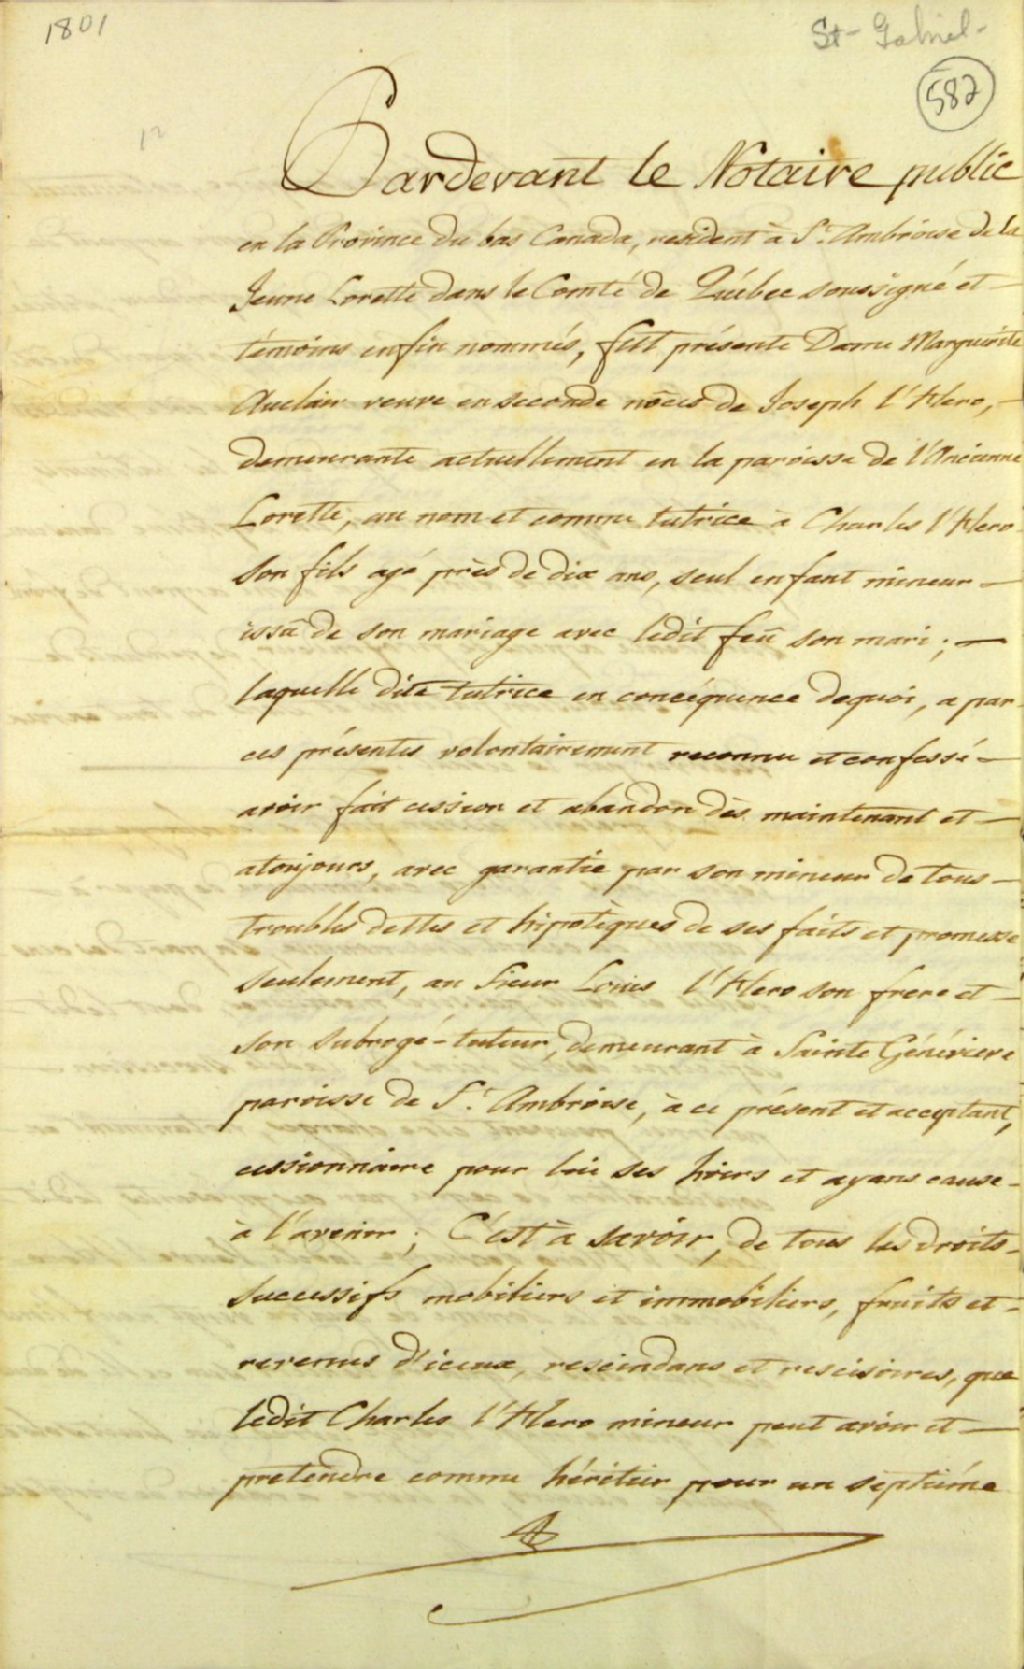 1801
St-Gabriel-
582
Pardevant le Notaire public
en la Province du bas Canada, resident à St. Ambroise de la
Jeune Lorette dans le Comté de Québec soussigné et —
témoins enfin nommés, fût présente Dame Marguerite
Auclair veuve en seconde nôces de Joseph l'Hero, —
demeurante actuellement en la paroisse de l'Ancienne
Lorette, au nom et comme tutrice à Charles l'Hero
son fils agé près de dix ans, seul enfant mineur —
issû de son mariage avec ledit feû son mari ; —
laquelle dite tutrice en conséquence dequoi, a par
ces présentes volontairement reconnu et confessé —
avoir fait cession et abandon dès maintenant et —
atoujours, avec garantie par son mineur de tous —
troubles dettes et hipotèques de ses faits et promesse
seulement, au Sieur Louis l'Hero son frere et —
son subrogé-tuteur, demeurant à Sainte Généviève
paroisse de St. Ambroise, à ce présent et acceptant,
cessionnaire pour lui ses hoirs et ayans cause -
à l'avenir ; C'est à savoir, de tous les droits -
successifs mobiliers et immobiliers, fruits et -
revenus d'iceux, rescindans et rescisoires, que
ledit Charles l'Hero mineur peut avoir et —
pretendre comme héritier pour un septiéme